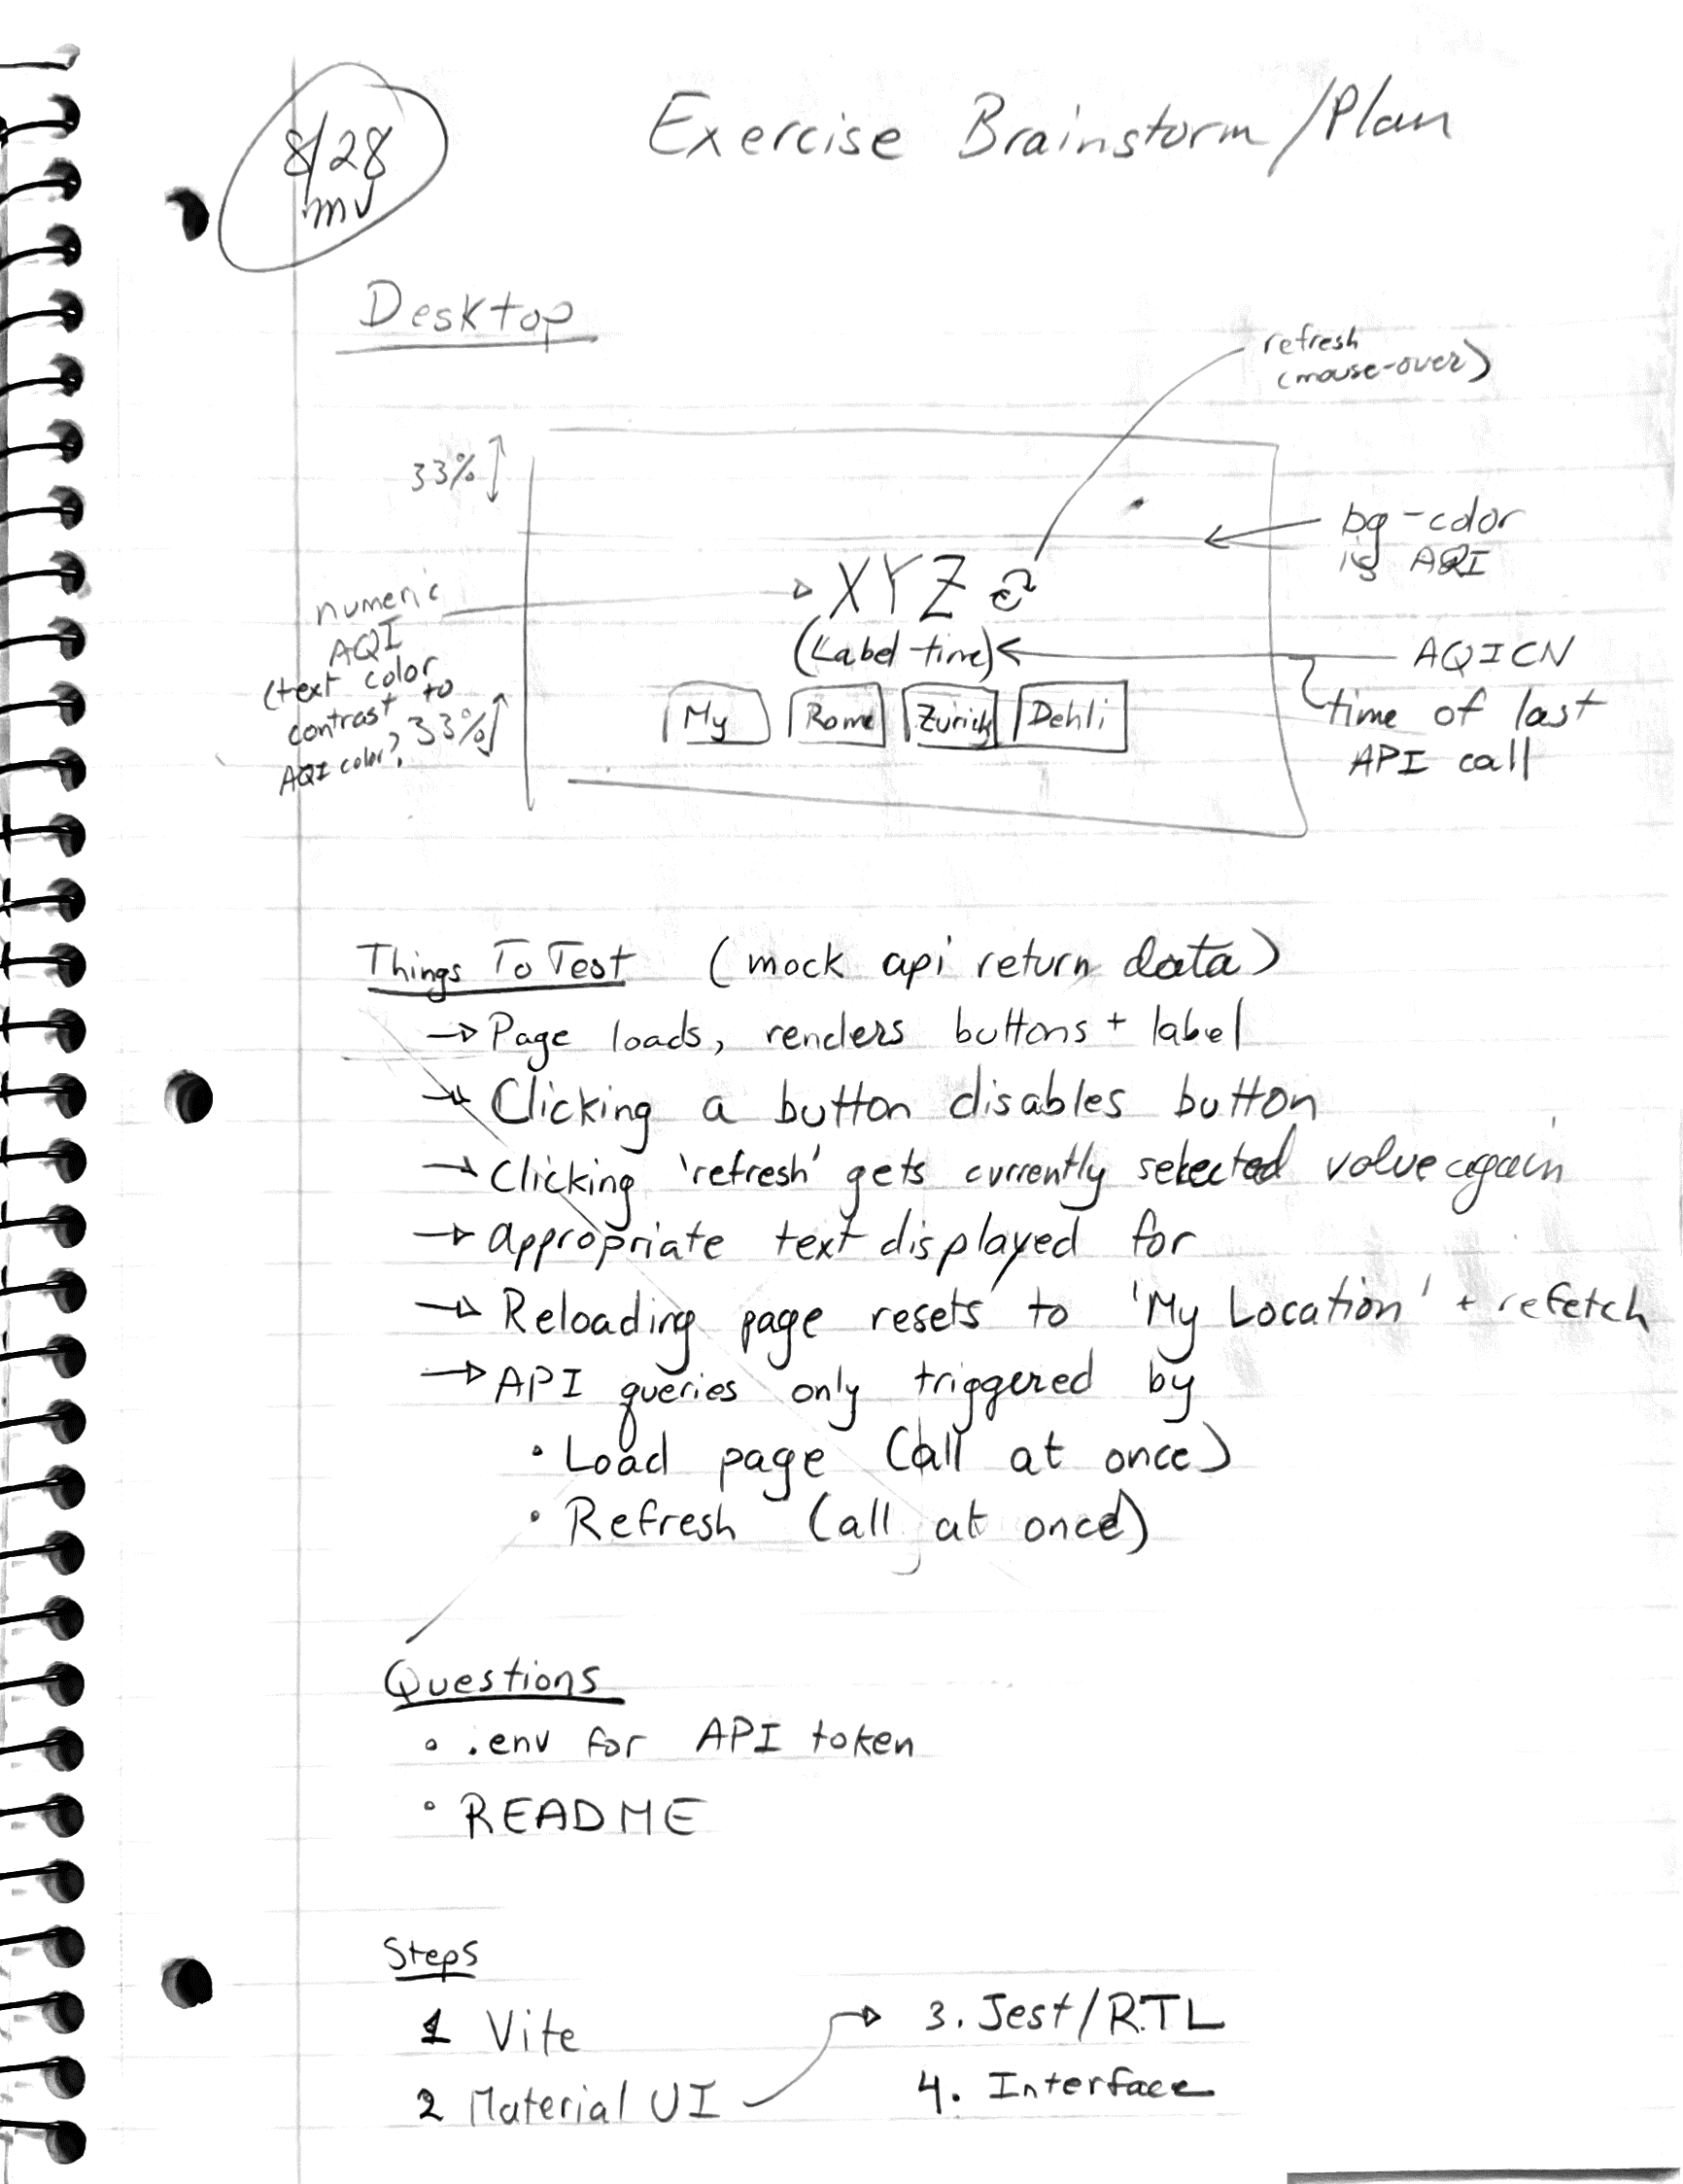 8/28
mv
Exercise Brainstorm/Plan
Desktop
refresh
(mouse-over)
33%
bg-color
is AQI
XYZ
numeric
AQI
(text color
contrast to
AQI color?
(Label-time)
AQICN
time of last
API call
33%
My
Rome
Zurich
Dehli
Things To Test (mock api return data)
→ Page loads, renders buttons + label
→ Clicking a button disables button
→ Clicking 'refresh' gets currently selected value again
→ appropriate text displayed for
→ Reloading page resets to 'My Location' + refetch
→ API queries only triggered by
• Load page (all at once)
• Refresh (all at once)
Questions
• .env for API token
• README
Steps
1 Vite
2 Material UI
3. Jest/RTL
4. Interface